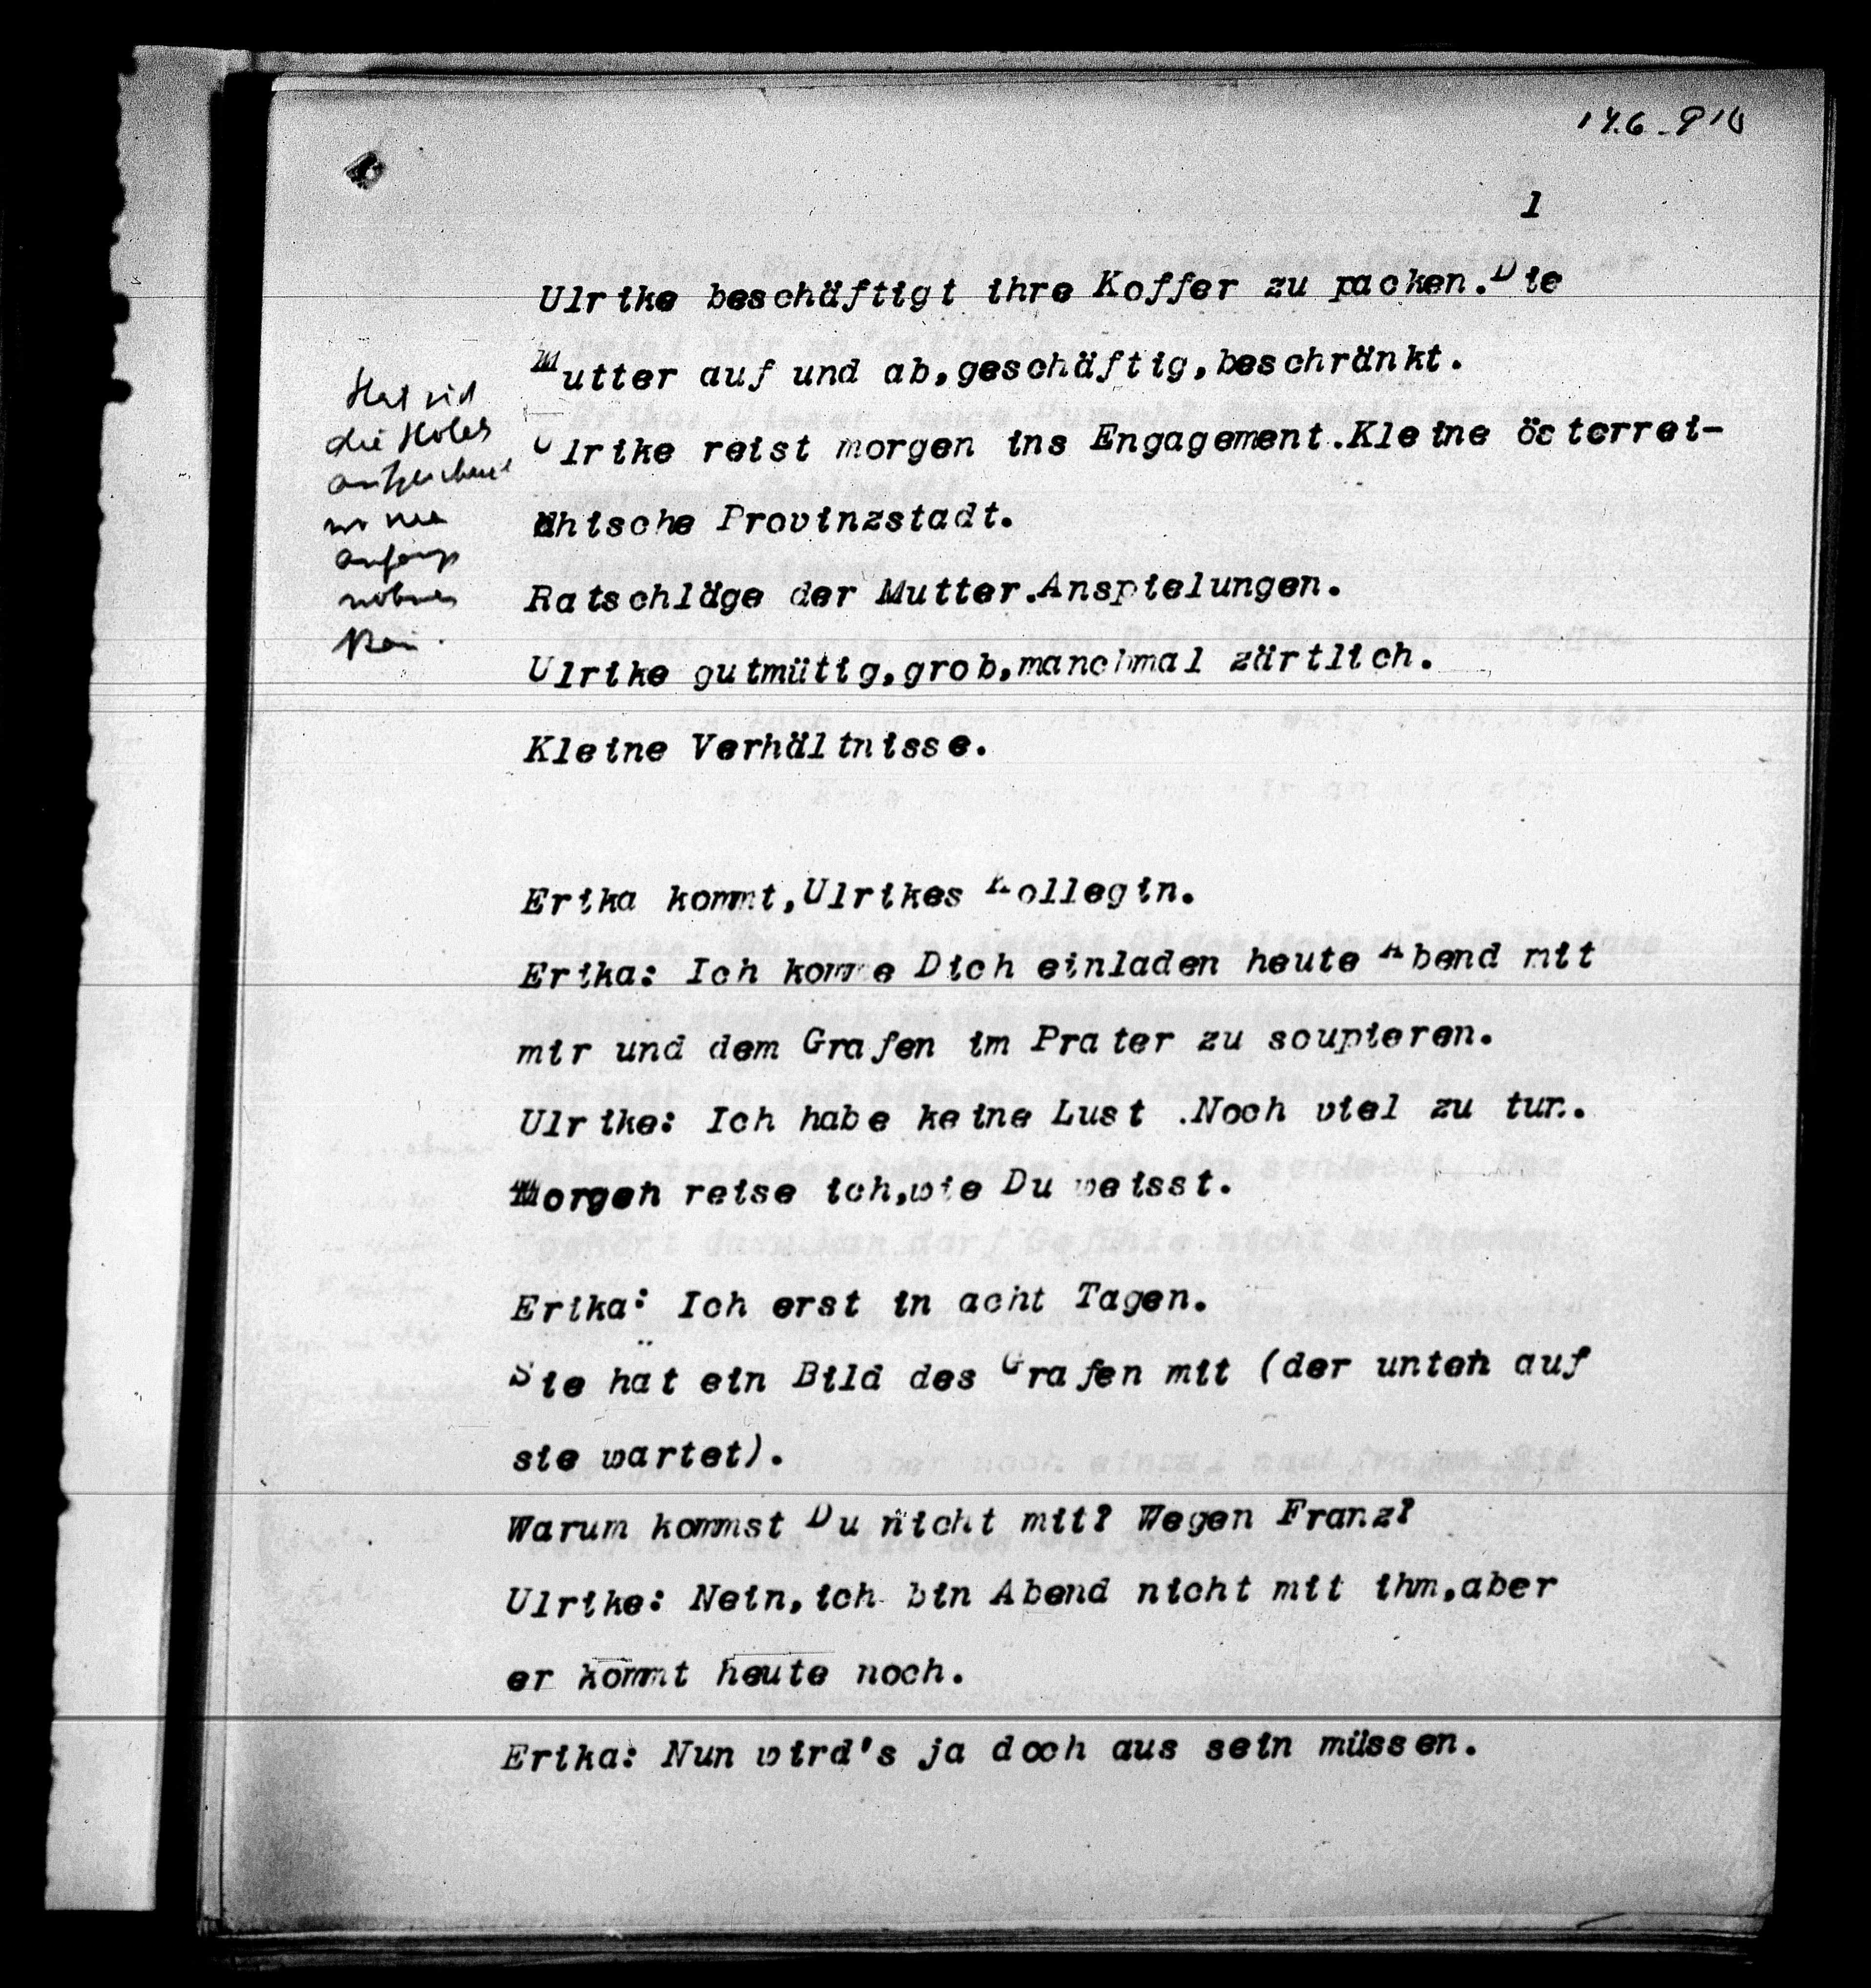 1
Ulrike beschäftigt ihre Koffer zu packen.Die
Mutter auf und ab,geschäftig,beschränkt.
Ulrike reist morgen ins Engagement.Kleine österrei-
chische Provinzstadt.
Ratschläge der Mutter.Anspielungen.
Ulrike gutmütig,grob,manchmal zärtlich.
Kleine Verhältnisse.
Hat sich
die Hotels
Erika kommt,Ulrikes Kollegin.
Erika: Ich komme Dich einladen heute Abend mit
mir und dem Grafen im Prater zu soupieren.
Ulrike: Ich habe keine Lust .Noch viel zu tun.
Morgen reise ich,wie Du weisst.
Erika: Ich erst in acht Tagen.
Sie hat ein Bild des Grafen mit (der unten auf
sie wartet).
Warum kommst Du nicht mit? Wegen Franz?
Ulrike: Nein,ich bin Abend nicht mit ihm,aber
er kommt heute noch.
Erika: Nun wird's ja doch aus sein müssen.